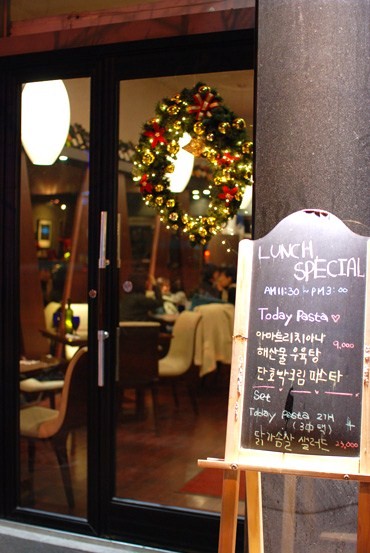 LUNCH
SPECIAL
AM 11:30 ~ PM 3:00
Today Pasta ♡
아마트리치아나
해산물 우육탕 9,000
단호박크림 파스타
Set
Today Pasta 2개
(3中 택)
닭가슴살 샐러드 23,000